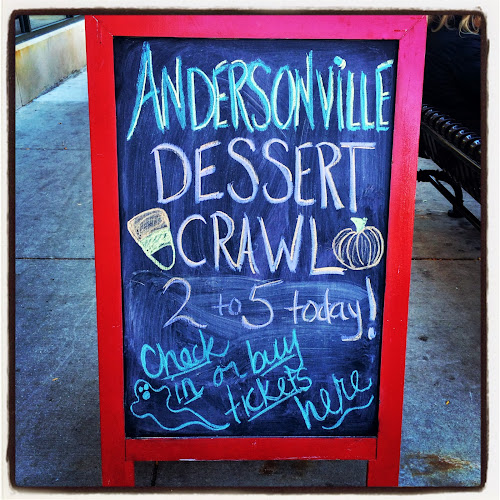 ANDERSONVILLE
DESSERT
CRAWL
2 to 5 today!
Check
in or buy
tickets
here